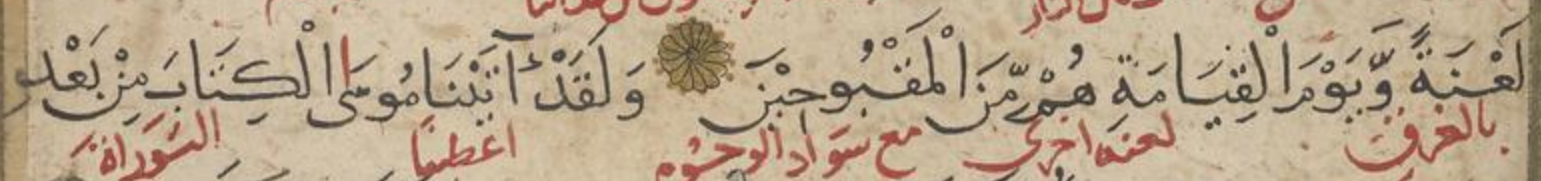 لَعْنَةً وَّيَوْمَ الْقِيَامَةِ هُمْ مِّنَ الْمَقْبُوحِيْنَ وَلَقَدْ آتَيْنَا مُوسَى الْكِتَابَ مِنْ بَعْدِ
بالغرق لعنة اخرى مع سواد الوجوه اعطينا التوراة